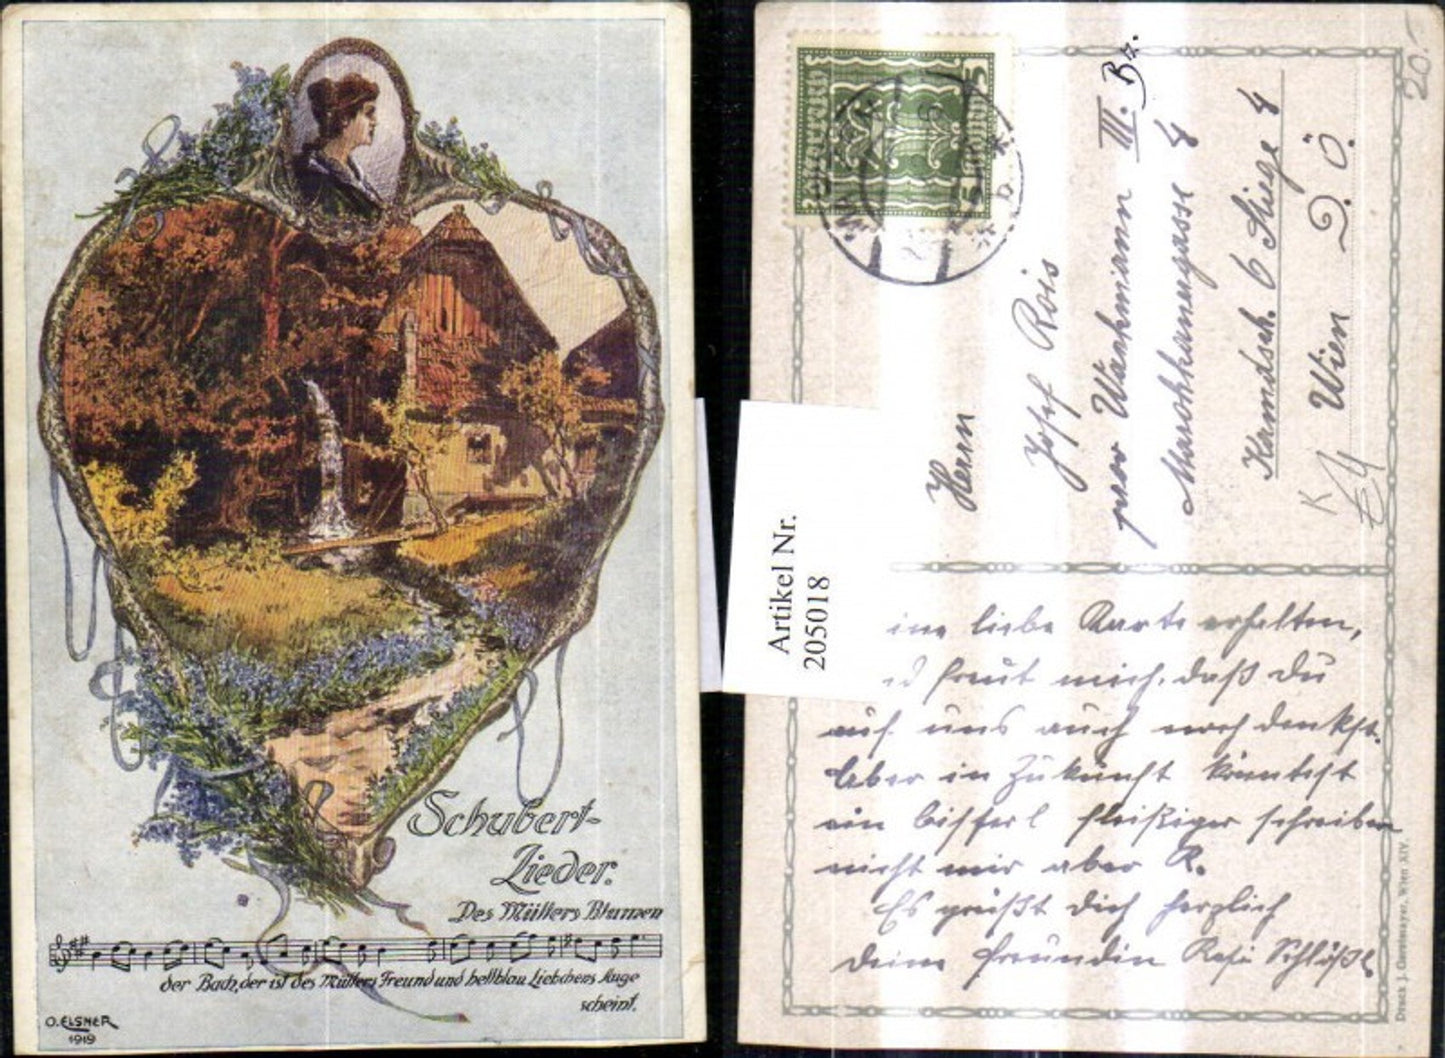 Schubert-
Lieder.
Des Müllers Blumen
der Bach, der ist des Müllers Freund und hellblau Liebchens Auge
scheint.
O. ELSNER
1919
Artikel Nr.
205018
20.-
Herrn
Josef Rois
III. Bz.
Marokkanergasse 4
6 Stiege 4
Wien D.Ö.
K
liebe Karte erhalten,
freut mich, daß Du
auf uns auch noch denkst.
Aber in Zukunft könntest
ein bisserl fleißiger schreiben
nicht mir aber R.
Es grüßt Dich herzlich
Deine Freundin Resi
Druck J. Gerstmayer, Wien XIV.